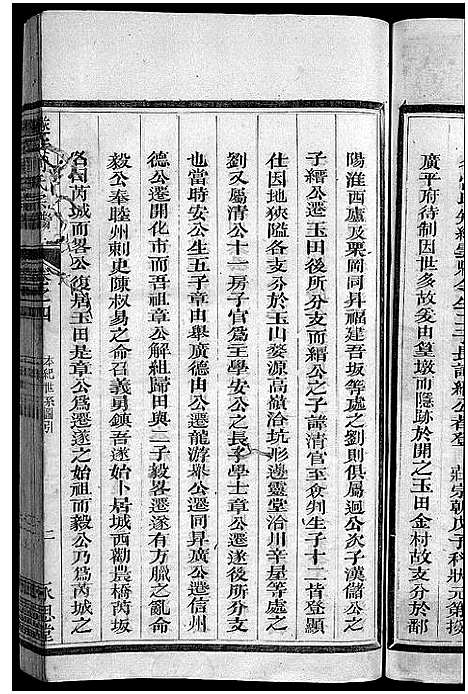 廣平府待制因世多故爰由皇墩而隱跡於開之玉田金村故支分於鄱
陽淮西盧及栗岡同昇福建吾坂等處之劉則俱屬迥公次子漢儲公之
子縉公遷玉田後所分支而縉公之子諱清官至僉判生子十二皆登顯
仕因地狹隘各支分於玉山婺源高嶺洽坑形邊靈堂洽川辛屋等處之
劉又屬清公十一房子官爲王學安公之長子學士章公遷遂後所分支
也當時安公生五子章由舉廣德由公遷龍游舉公遷同昇廣公遷信州
德公遷開化市而吾祖章公解組歸田與二子毅畧遷遂有方臘之亂命
毅公奉睦州刺史陳权易之命召義勇鎮吾遂始卜居城西勸農橋芮坂
名同芮城而畧公復居玉田是章公爲遷遂之始祖而毅公乃爲芮城之
卷之四
本紀世系圖引
二
承恩堂